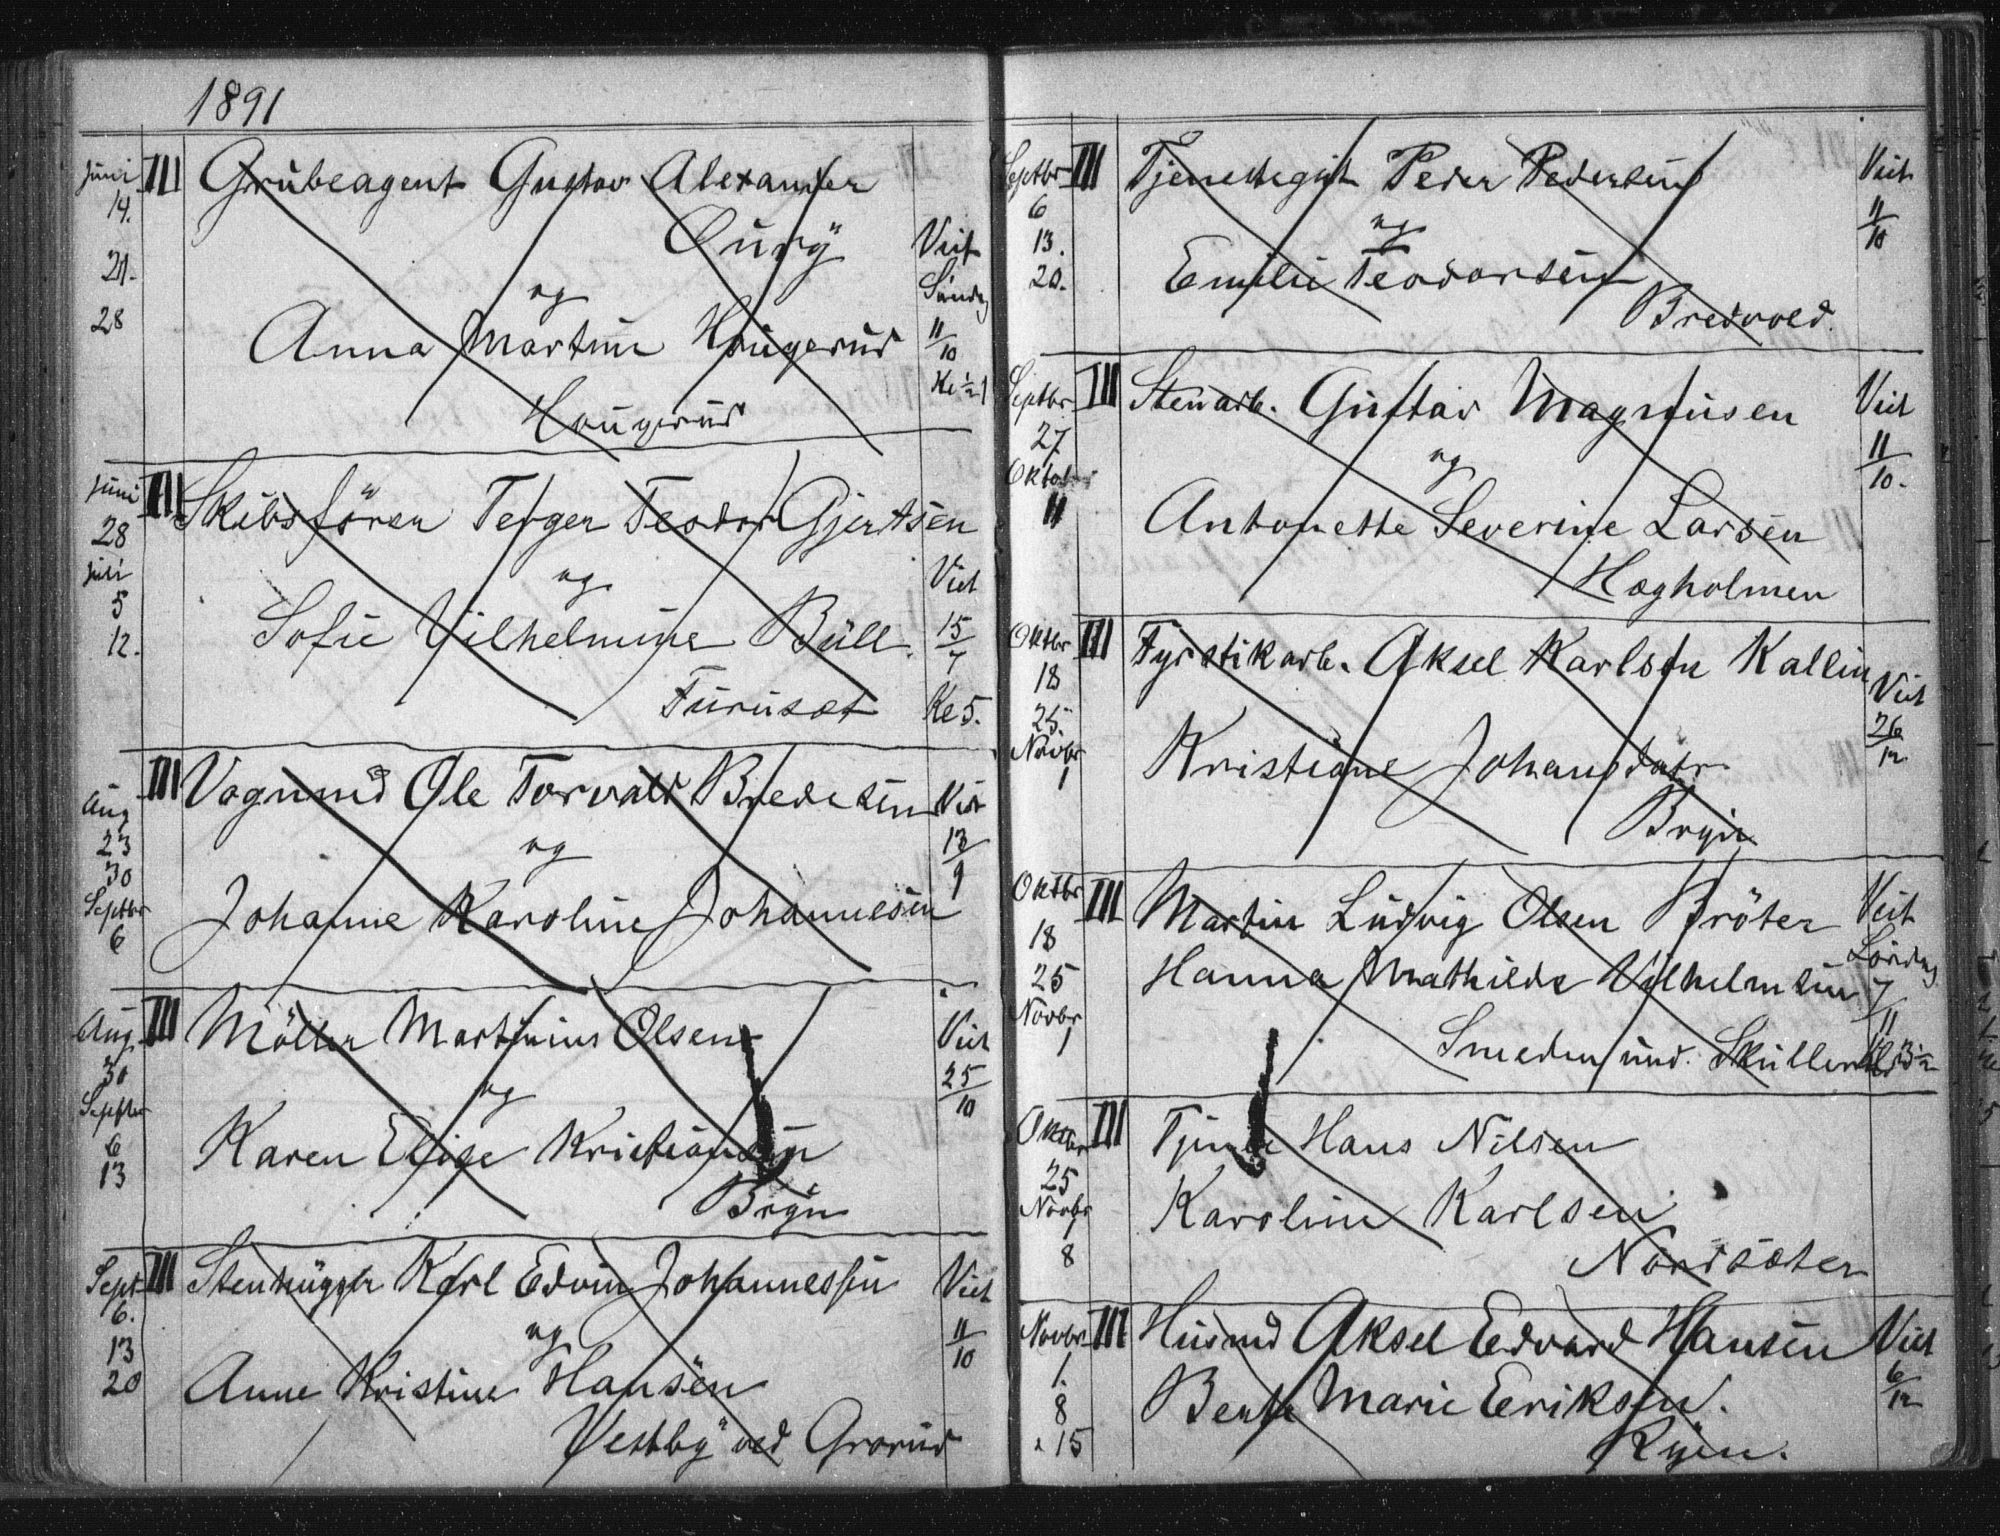 1891
Juni 14. 21. 28 III Grubeagent Gustav Alexander
Viet Søndag 11/10 Kl ½1
og
Anna Martine Hougerud
Hougerud
Juni 28 Juli 5 12. III Skibsfören Terger Teodor Gjertsen
og
Sofie Vilhelmine Büll. Viet 15/7 Kl 5.
Furuset
Aug 23 30 Septbr 6 III Vognmd Ole Torvald Bredesen Viet 13/9
og
Johanne Karoline Johannesen
Aug. 30 Septbr 6 13 III Möller Martinius Olsen Viet 25/10
og
Karen Elise Kristiansen
Bryn
Sept 6. 13 20 III Stenhugger Karl Edvin Johannessen Viet 11/10
og
Anne Kristine Hansen
Vestby ved Grorud
Septbr 6 13. 20. III Tjenestegut Peder Pedersen Viet 11/10
og
Emilie Teodorsen
Bredvold.
Septbr 27 Oktob 11 III Stenarb. Gustav Magnusen Viet 11/10.
og
Antonette Severine Larsen
Hægholmen
Oktbr 18 25 Novbr 1 III Fyrstikarb. Aksel Karlsen Kallin Viet 26/12
Kristiane Johansdatr
Bryn
Oktbr 18 25 Novbr 1 III Martin Ludvig Olsen Bröter Viet Lørdag 7/11
Hanna Mathilde Vilhelmsen
Smeden und. Skullerud
Oktbr 25 Novbr 1 8 III Hans Nilsen
Karoline Karlsen
Nordsæter
Novbr. 1. 8 15 III Husmd Aksel Edvard Hansen Viet 6/12
Bente Marie Eriksen.
Ryen.